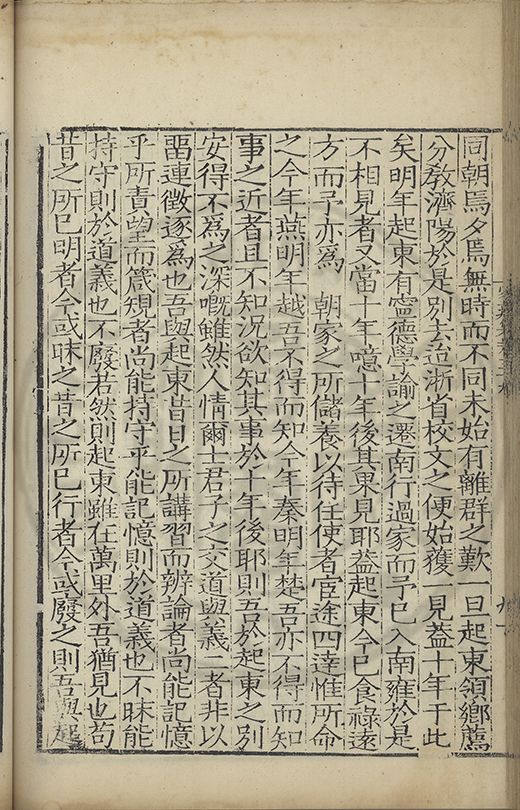 同朝焉夕焉無時而不同未始有離群之歎一旦起東領鄉薦
分敎濟陽於是別去迨浙省校文之便始獲一見葢十年于此
矣明年起東有寧德學諭之遷南行過家而予已入南雍於是
不相見者又當十年噫十年後其果見耶葢起東今已食祿遠
方而予亦爲　朝家之所儲養以待任使者宦途四達惟所命
之今年燕明年越吾不得而知今年秦明年楚吾亦不得而知
事之近者且不知況欲知其事於十年後耶則吾於起東之別
安得不爲之深嘅雖然人情爾士君子之交道與義二者非以
畱連徵逐爲也吾與起東昔日之所講習而辨論者尚能記憶
乎所責望而箴規者尚能持守乎能記憶則於道義也不昧能
持守則於道義也不廢若然則起東雖在萬里外吾猶見也苟
昔之所已明者今或昧之昔之所已行者今或廢之則吾與起